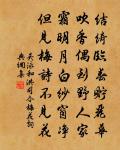 結綺臨春貯飛華
吹香偶別野人家
霜明月白紗窗淨
但見梅詩不見花
吳泳和洪司令梅花韻